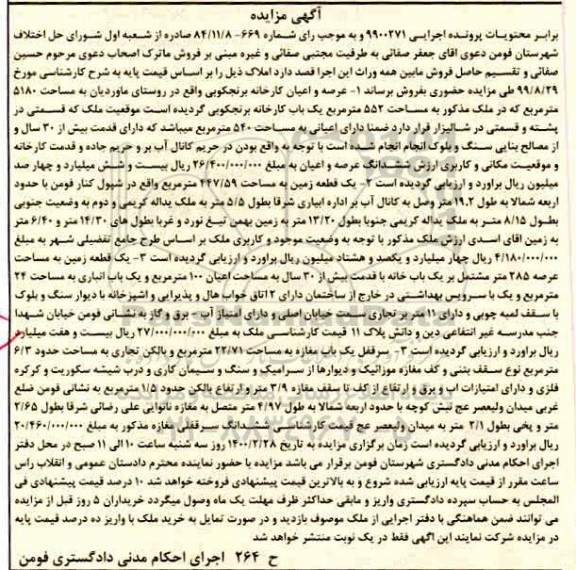 آگهی مزایده
برابر محتویات پرونده اجرایی ۹۹۰۰۲۷۱ و به موجب رای شماره ۶۶۹- ۸۴/۱۱/۸ صادره از شعبه اول شورای حل اختلاف
شهرستان فومن دعوی اقای جعفر صفائی به طرفیت مجتبی صفائی و غیره مبنی بر فروش ماترک اصحاب دعوی مرحوم حسین
صفائی و تقسیم حاصل فروش مابین همه وراث این اجرا قصد دارد املاک ذیل را بر اساس قیمت پایه به شرح کارشناسی مورخ
۹۹/۸/۲۹ طی مزایده حضوری بفروش برساند ۱- عرصه و اعیان کارخانه برنجکوبی واقع در روستای ماوردیان به مساحت ۵۱۸۰
مترمربع که در ملک مذکور به مساحت ۵۵۲ مترمربع یک باب کارخانه برنجکوبی گردیده است موقعیت ملک که قسمتی در
پشته و قسمتی در شالیزار قرار دارد ضمنا دارای اعیانی به مساحت ۵۴۰ مترمربع میباشد که دارای قدمت بیش از ۳۰ سال و
از مصالح بنایی سنگ و بلوک انجام انجام شده است با توجه به واقع بودن در حریم کانال آب بر و حریم جاده و قدمت کارخانه
و موقعیت مکانی و کاربری ارزش ششدانگ عرصه و اعیان به مبلغ ۲۶/۴۰۰/۰۰۰/۰۰۰ ریال بیست و شش میلیارد و چهار صد
میلیون ریال براورد و ارزیابی گردیده است ۲- یک قطعه زمین به مساحت ۴۴۷/۵۹ مترمربع واقع در شهول کنار فومن با حدود
اربعه شمالا به طول ۱۹.۲ متر وصل به کانال آب بر اداره ابیاری شرقا بطول ۵/۵ متر به ملک یداله کریمی و دوم به وضعیت جنوبی
بطول ۸/۱۵ متر به ملک یداله کریمی جنوبا بطول ۱۳/۲۰ متر به زمین بهمن تیغ نورد و غربا بطول های ۱۴/۳۰ متر و ۶/۴۰ متر
به زمین اقای اسدی ارزش ملک مذکور با توجه به وضعیت موجود و کاربری ملک بر اساس طرح جامع تفضیلی شهر به مبلغ
۴/۱۸۰/۰۰۰/۰۰۰ ریال چهار میلیارد و یکصد و هشتاد میلیون ریال براورد و ارزیابی گردیده است ۳- یک قطعه زمین به مساحت
عرصه ۲۸۵ متر مشتمل بر یک باب خانه با قدمت بیش از ۳۰ سال به مساحت اعیان ۱۰۰ مترمربع و یک باب انباری به مساحت ۲۴
مترمربع و یک با سرویس بهداشتی در خارج از ساختمان دارای ۲ اتاق خواب هال و پذیرایی و اشپزخانه با دیوار سنگ و بلوک
با سقف لمبه چوبی و دارای ۱۱ متر بر تجاری سمت خیابان اصلی و دارای امتیاز آب - برق و گاز به نشانی فومن خیابان شهدا
جنب مدرسه غیر انتفاعی دین و دانش پلاک ۱۱ قیمت کارشناسی ملک به مبلغ ۲۷/۰۰۰/۰۰۰/۰۰۰ ریال بیست و هفت میلیارد
ریال براورد و ارزیابی گردیده است ۳- سرقفل یک باب مغازه به مساحت ۲۲/۷۱ مترمربع و بالکن تجاری به مساحت حدود ۶/۳
مترمربع نوع سقف بتنی و کف مغازه موزائیک و دیوارها از سرامیک و سنگ و سیمان کاری و درب شیشه سکوریت و کرکره
فلزی و دارای امتیازات اب و برق و ارتفاع از کف تا سقف مغازه ۳/۹ متر و ارتفاع بالکن حدود ۱/۵ مترمربع به نشانی فومن ضلع
غربی میدان ولیعصر عج نبش کوچه با حدود اربعه شمالا به طول ۴/۹۷ متر متصل به مغازه نانوایی علی رضائی شرقا بطول ۲/۶۵
متر و پخی بطول ۲/۱ متر به میدان ولیعصر عج قیمت کارشناسی ششدانگ سرقفلی مغازه مذکور به مبلغ ۲۰/۴۶۰/۰۰۰/۰۰۰
ریال براورد و ارزیابی گردیده است زمان برگزاری مزایده به تاریخ ۱۴۰۰/۲/۲۸ روز سه شنبه ساعت ۱۰ الی ۱۱ صبح در محل دفتر
اجرای احکام مدنی دادگستری شهرستان فومن برقرار می باشد مزایده با حضور نماینده محترم دادستان عمومی و انقلاب راس
ساعت مقرر از قیمت پایه ارزیابی شده شروع و به بالاترین قیمت پیشنهادی فروخته خواهد شد ۱۰ درصد قیمت پیشنهادی فی
المجلس به حساب سپرده دادگستری واریز و مابقی حداکثر ظرف مهلت یک ماه وصول میگردد خریداران ۵ روز قبل از مزایده
می توانند ضمن هماهنگی با دفتر اجرایی از ملک موصوف بازدید و در صورت تمایل به خرید ملک با واریز ده درصد قیمت پایه
در مزایده شرکت نمایند این اگهی فقط در یک نوبت منتشر خواهد شد
ح ۲۶۴ اجرای احکام مدنی دادگستری فومن